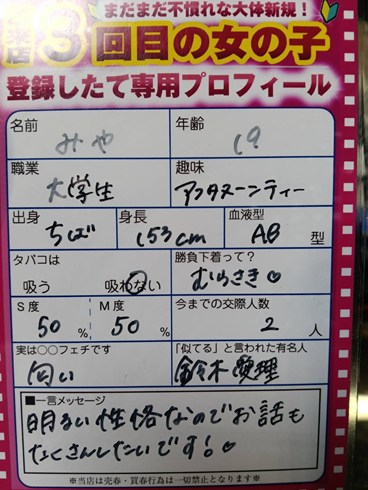 まだまだ不慣れな大体新規！
来店8回目の女の子
登録したて専用プロフィール
名前 みや
年齢 19
職業 大学生
趣味 アフタヌーンティー
出身 ちば
身長 153cm
血液型 AB 型
タバコは 吸う 吸わない
勝負下着って？ むらさき♡
S度 50%
M度 50%
今までの交際人数 2人
実は○○フェチです 匂い
「似てる」と言われた有名人 鈴木愛理
■一言メッセージ
明るい性格なのでお話も
たくさんしたいです！♡
※当店は売春・買春行為は一切禁止となります※